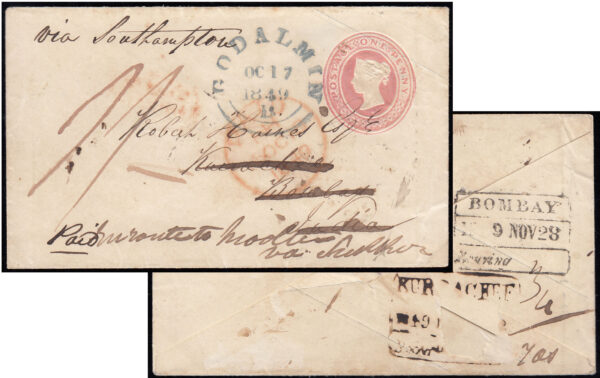 via Southampton
GODALMIN
OC 17
1849
A
POSTAGE ONE PENNY
1/-
Robert Haines Esqre
Kurrachee
Bombay
India
Paid
en route to Mooltan
via Sukkur
BOMBAY
9 NOV 28
KURRACHEE
49